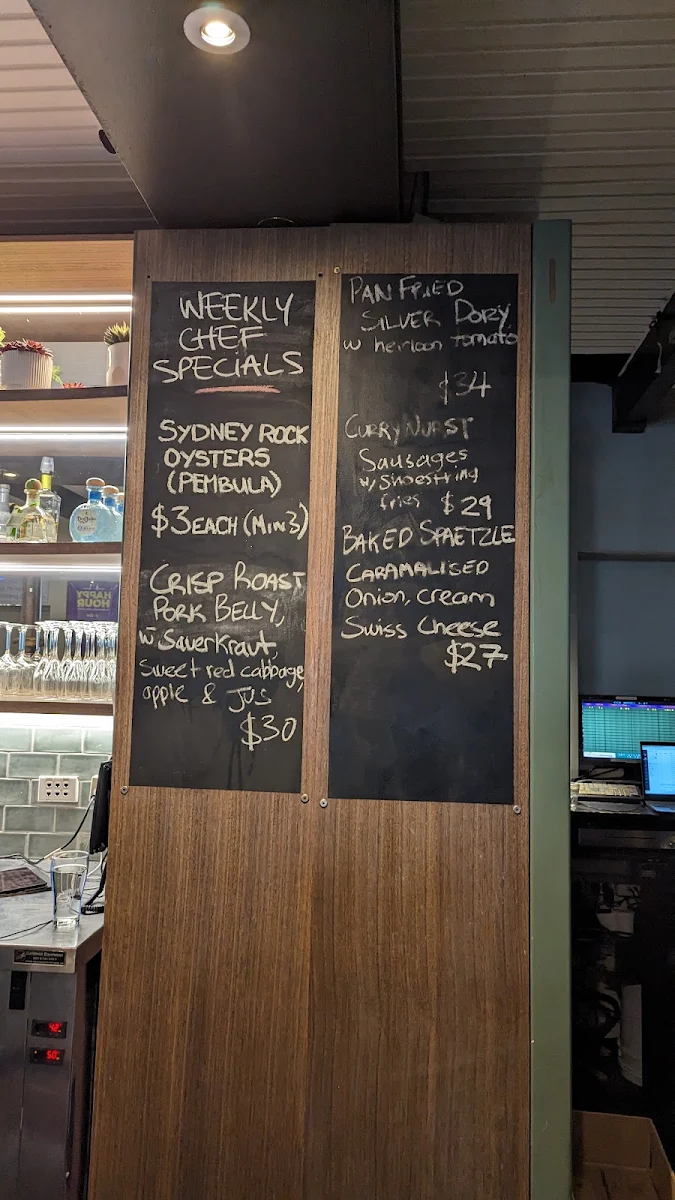 WEEKLY
CHEF
SPECIALS
SYDNEY ROCK
OYSTERS
(PEMBULA)
$3 EACH (MIN 3)
CRISP ROAST
PORK BELLY,
w SauerKraut,
Sweet red cabbage,
apple & JUS
$30
PAN FRIED
SILVER DORY
w heirloon tomato
$34
CURRYWURST
Sausages
w/ Shoestring
fries $29
BAKED SPAETZLE
CARAMALISED
Onion, cream
Swiss Cheese
$27
HAPPY
HOUR